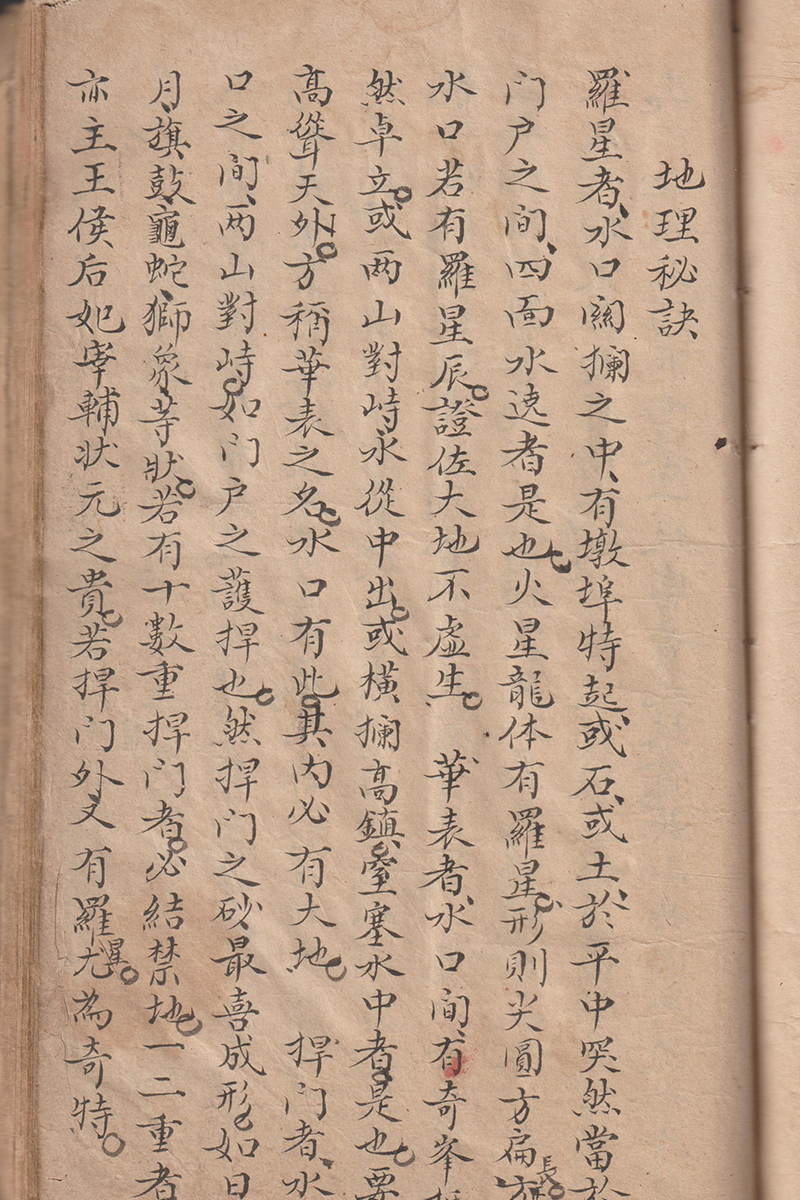 地理秘訣
羅星者、水口關攔之中、有墩埠特起、或石、或土、於平中突然當於
门户之间、四面水遶者是也。火星龍体有羅星、形則尖圓方扁長
水口若有羅星辰。證佐大地不虛生。　華表者、水口间、有奇峯挺
然卓立。或两山對峙、水從中出。或橫攔高鎮、窒塞水中者是也。要
高聳天外。方稱華表之名。水口有此。其内必有大地。　捍门者、水
口之间、两山對峙。如门户之護捍也。然捍门之砂、最喜成形。如日
月、旗鼓、龜蛇、獅象、等狀。若有十數重捍门者。必結禁地。一二重者
亦主王侯后妃宰輔状元之貴。若捍门外又有羅星。尤為奇特。